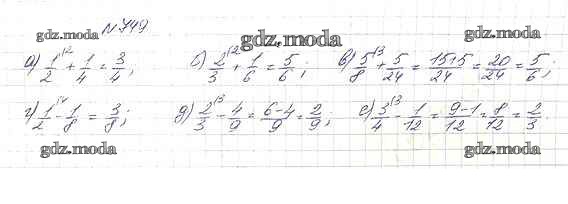 N 749
gdz.moda gdz.moda gdz.moda
а) 1/2^12 + 1/4 = 3/4; б) 2/3^12 + 1/6 = 5/6; в) 5/8^13 + 5/24 = 15+5/24 = 20/24 = 5/6;
г) 1/2 - 1/8 = 3/8; д) 2/3^13 - 4/9 = 6-4/9 = 2/9; е) 3/4^13 - 1/12 = 9-1/12 = 8/12 = 2/3.
gdz.moda gdz.moda